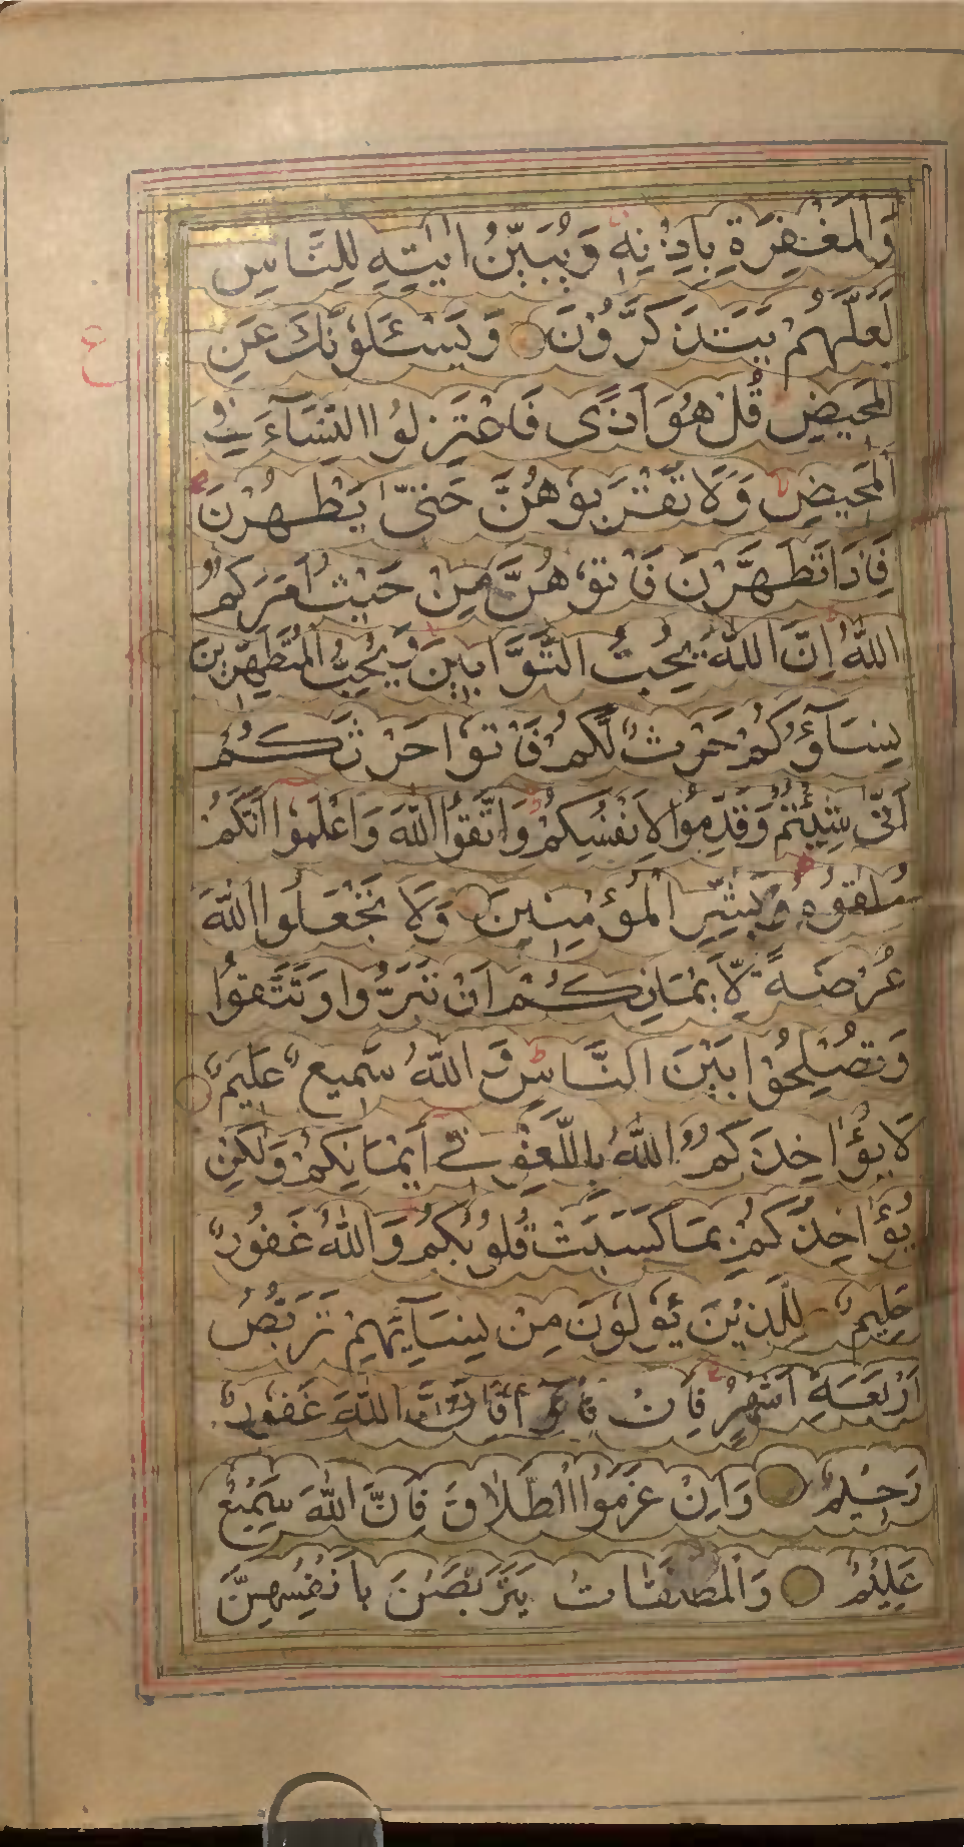 وَالْمَغْفِرَةِ بِاِذْنِهٖ وَيُبَيِّنُ اٰيٰتِهٖ لِلنَّاسِ
لَعَلَّهُمْ يَتَذَكَّرُوْنَ وَيَسْـَٔلُوْنَكَ عَنِ
الْمَحِيْضِ قُلْ هُوَ اَذًى فَاعْتَزِلُوا النِّسَآءَ فِى
الْمَحِيْضِ وَلَا تَقْرَبُوْهُنَّ حَتّٰى يَطْهُرْنَ
فَاِذَا تَطَهَّرْنَ فَاْتُوْهُنَّ مِنْ حَيْثُ اَمَرَكُمُ
اللّٰهُ اِنَّ اللّٰهَ يُحِبُّ التَّوَّابِيْنَ وَيُحِبُّ الْمُتَطَهِّرِيْنَ
نِسَآؤُكُمْ حَرْثٌ لَّكُمْ فَاْتُوْا حَرْثَكُمْ
اَنّٰى شِئْتُمْ وَقَدِّمُوْا لِاَنْفُسِكُمْ وَاتَّقُوا اللّٰهَ وَاعْلَمُوْا اَنَّكُمْ
مُّلٰقُوْهُ وَبَشِّرِ الْمُؤْمِنِيْنَ وَلَا تَجْعَلُوا اللّٰهَ
عُرْضَةً لِّاَيْمَانِكُمْ اَنْ تَبَرُّوْا وَتَتَّقُوْا
وَتُصْلِحُوْا بَيْنَ النَّاسِ وَاللّٰهُ سَمِيْعٌ عَلِيْمٌ
لَا يُؤَاخِذُكُمُ اللّٰهُ بِاللَّغْوِ فِىْ اَيْمَانِكُمْ وَلٰكِنْ
يُّؤَاخِذُكُمْ بِمَا كَسَبَتْ قُلُوْبُكُمْ وَاللّٰهُ غَفُوْرٌ
حَلِيْمٌ لِلَّذِيْنَ يُؤْلُوْنَ مِنْ نِسَآئِهِمْ تَرَبُّصُ
اَرْبَعَةِ اَشْهُرٍ فَاِنْ فَآءُوْ فَاِنَّ اللّٰهَ غَفُوْرٌ
رَحِيْمٌ وَاِنْ عَزَمُوا الطَّلَاقَ فَاِنَّ اللّٰهَ سَمِيْعٌ
عَلِيْمٌ وَالْمُطَلَّقَاتُ يَتَرَبَّصْنَ بِاَنْفُسِهِنَّ
ع